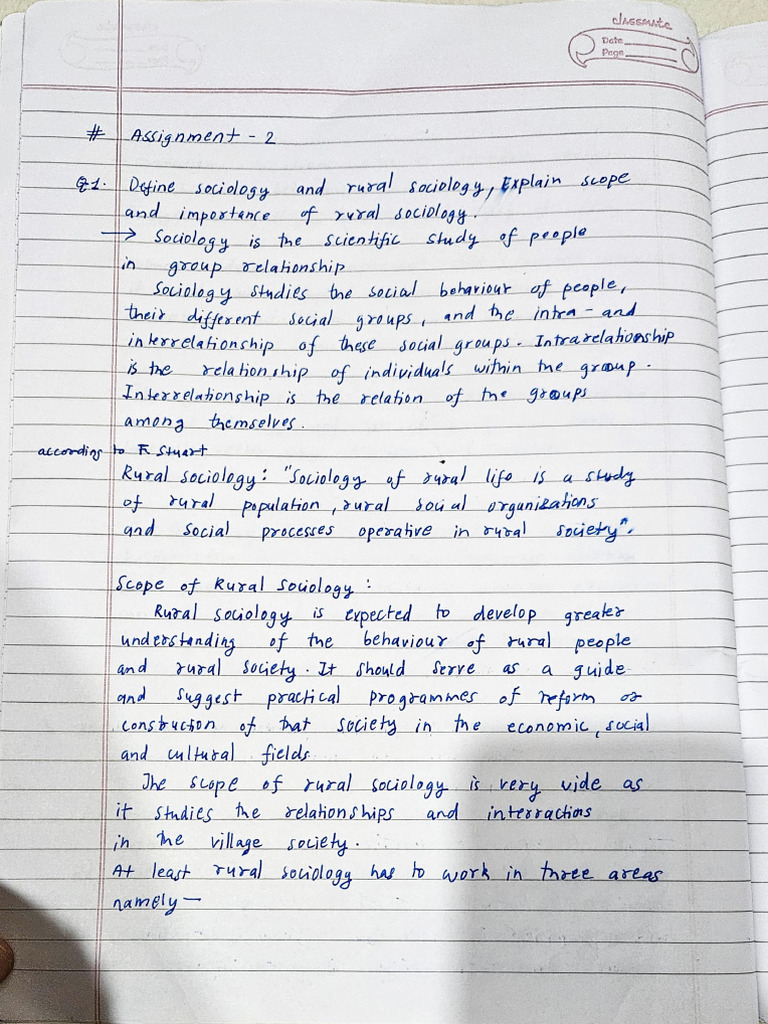 classmate
Date
Page
# Assignment - 2
Q1. Define sociology and rural sociology, Explain scope
and importance of rural sociology.
→ Sociology is the scientific study of people
in group relationship
Sociology studies the social behaviour of people,
their different social groups, and the intra - and
interrelationship of these social groups. Intrarelationship
is the relationship of individuals within the group.
Interrelationship is the relation of the groups
among themselves.
according to F. Stuart
Rural sociology: "Sociology of rural life is a study
of rural population, rural social organizations
and social processes operative in rural society".
Scope of Rural Sociology:
Rural sociology is expected to develop greater
understanding of the behaviour of rural people
and rural society. It should serve as a guide
and suggest practical programmes of reform or
construction of that society in the economic, social
and cultural fields
The scope of rural sociology is very wide as
it studies the relationships and interractions
in the village society.
At least rural sociology has to work in three areas
namely —